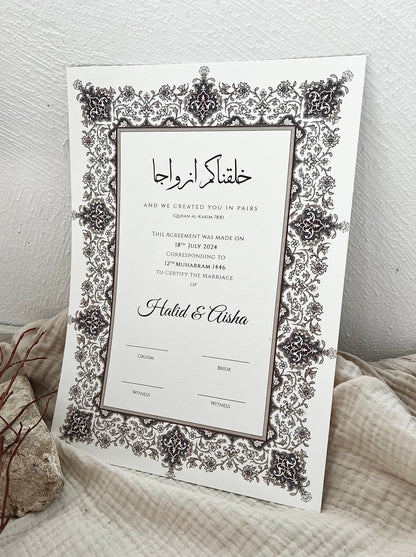 خلقناكم ازواجا
AND WE CREATED YOU IN PAIRS
(QURAN AL-KARIM 78:8)
THIS AGREEMENT WAS MADE ON
18TH JULY 2024
CORRESPONDING TO
12TH MUHARRAM 1446
TO CERTIFY THE MARRIAGE
OF
Halid & Aisha
GROOM
BRIDE
WITNESS
WITNESS